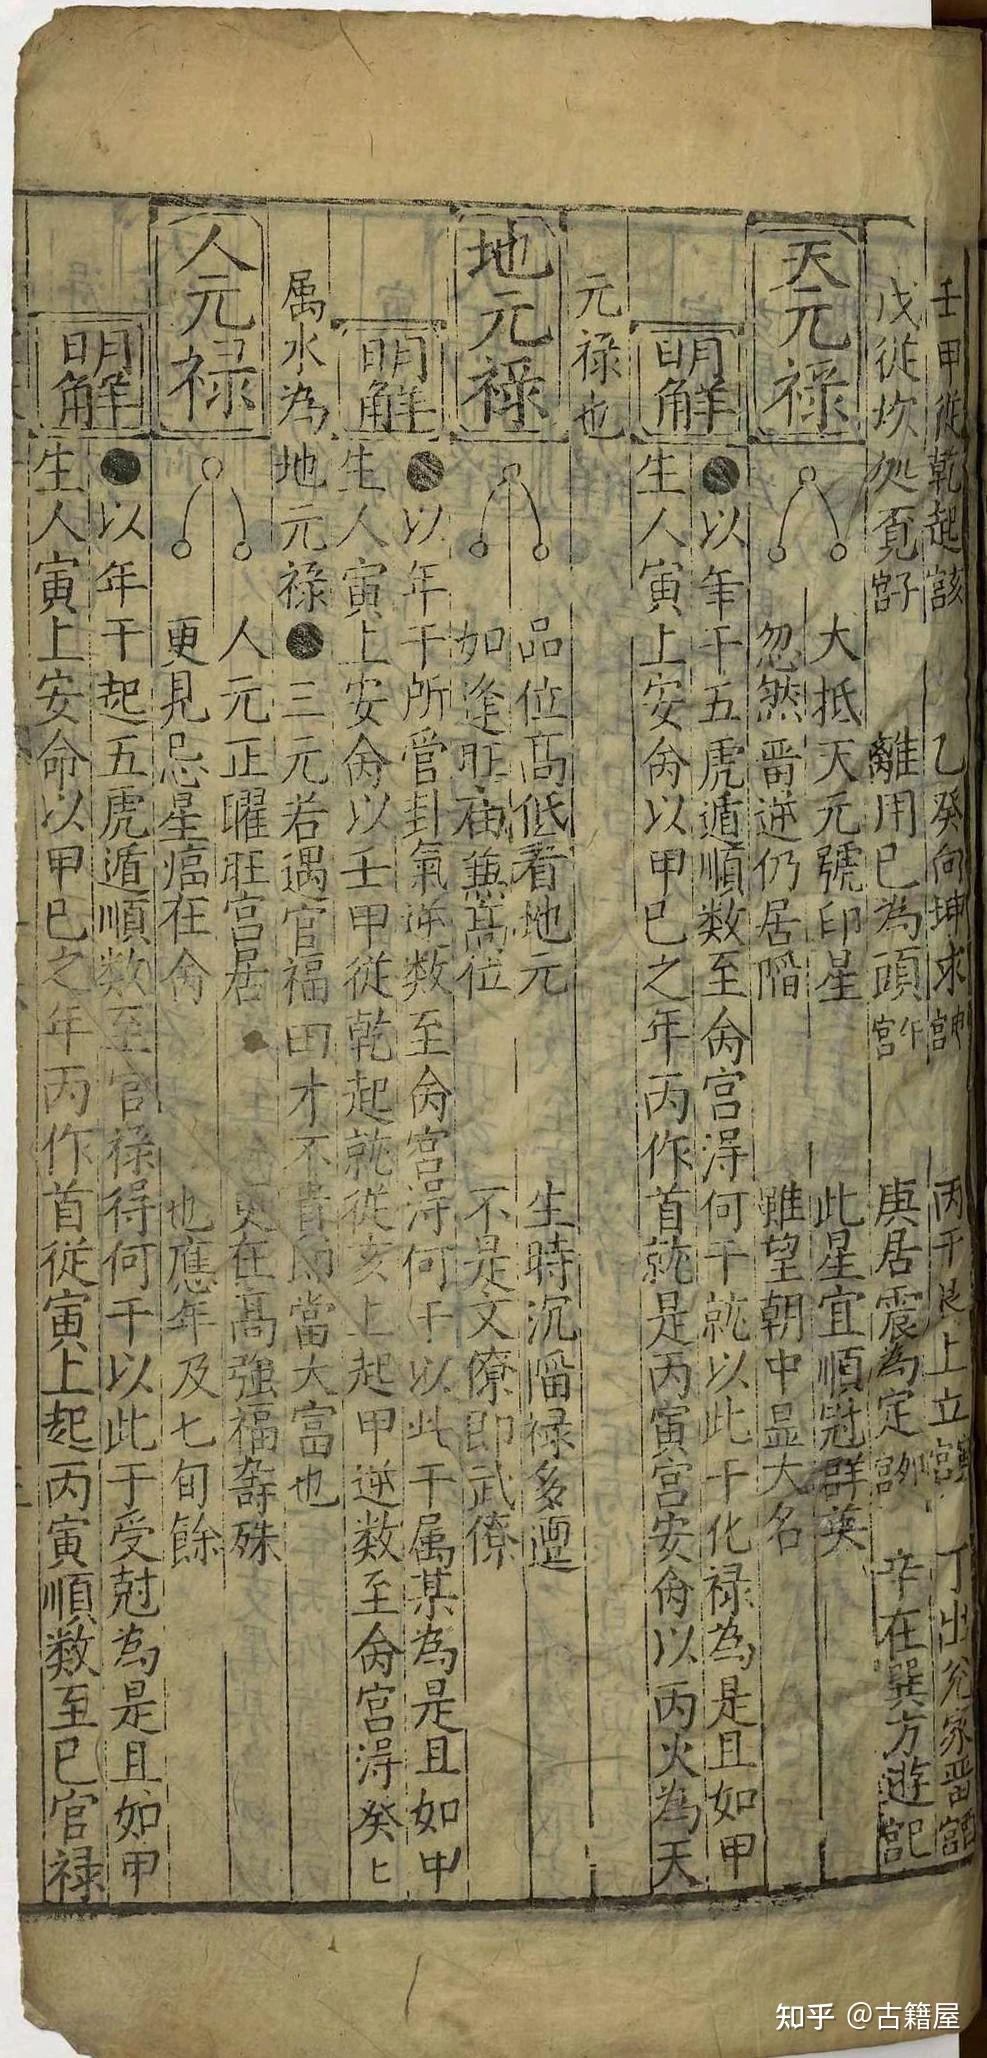 壬甲從乾起亥宮 乙癸向坤求申宮 丙于艮上立寅宮 丁出兊家留酉宮
戊從坎処覔子宮 離用巳為頭午宮 庚居震為定卯宮 辛在巽方遊巳宮
天元祿 大抵天元號印星 此星宜順冠群英
忽然留逆仍居陷 雖望朝中显大名
明解 ●以年干五虎遁順数至命宮淂何干就以此干化禄為是且如甲
生人寅上安命以甲巳之年丙作首就是丙寅宮安命以丙火為天
元祿也
地元祿 品位高低看地元 生時沉陷禄多迍
如逢旺庙兼高位 不是文僚即武僚
明解 ●以年干所管卦氣逆数至命宮淂何干以此干属某為是且如甲
生人寅上安命以壬甲從乾起就從亥上起甲逆数至命宮淂癸匕
属水為地元禄●三元若遇官福田才不貴即當大富也
人元禄 人元正曜旺宮居 更在高強福壽殊
更見忌星臨在命 也應年及七旬餘
明解 ●以年干起五虎遁順数至官禄得何干以此干受尅為是且如甲
生人寅上安命以甲巳之年丙作首從寅上起丙寅順数至巳官禄
知乎 @古籍屋